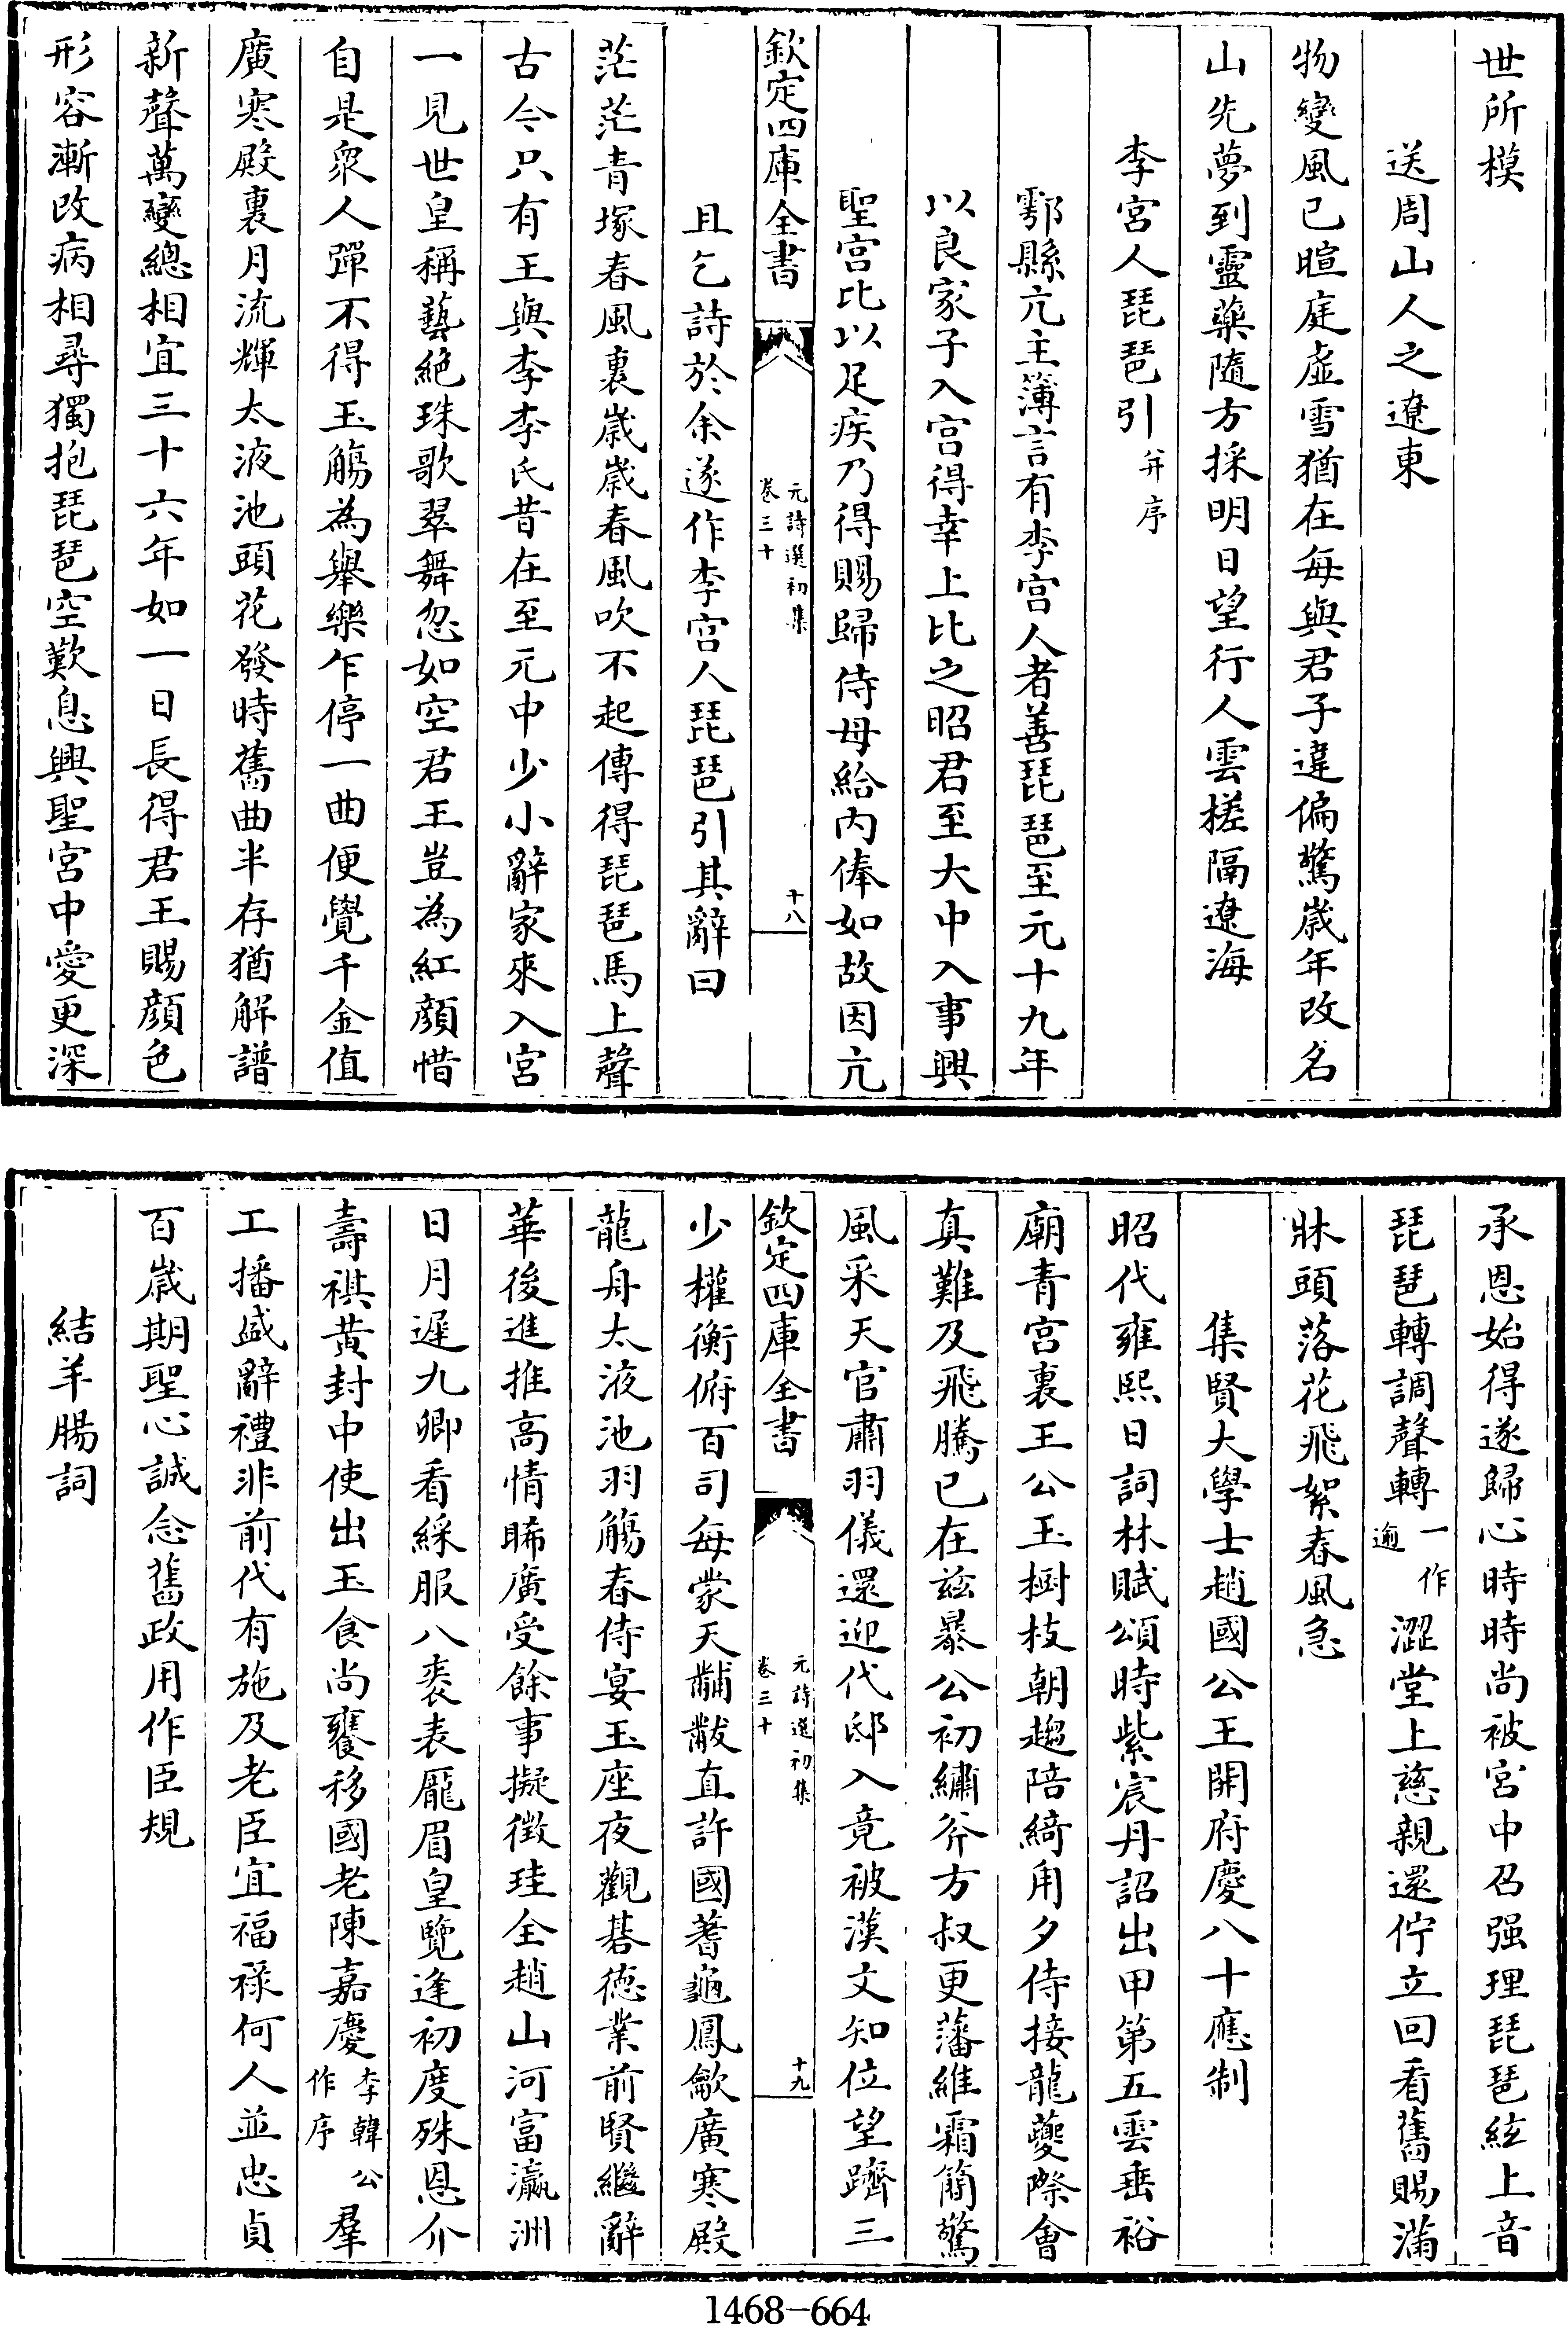 世所模
送周山人之遼東
物變風已暄庭虛雪猶在每與君子違偏驚歲年改名
山先夢到靈藥隨方採明日望行人雲槎隔遼海
李宮人琵琶引并序
鄠縣亢主簿言有李宮人者善琵琶至元十九年
以良家子入宮得幸上比之昭君至大中入事興
聖宮比以足疾乃得賜歸侍母給內俸如故因亢
欽定四庫全書
元詩選初集
卷三十
十八
且乞詩於余遂作李宮人琵琶引其辭曰
茫茫青塚春風裏歲歲春風吹不起傳得琵琶馬上聲
古今只有王與李李氏昔在至元中少小辭家來入宮
一見世皇稱藝絕珠歌翠舞忽如空君王豈為紅顏惜
自是衆人彈不得玉觴為舉樂乍停一曲便覺千金值
廣寒殿裏月流輝太液池頭花發時舊曲半存猶解譜
新聲萬變總相宜三十六年如一日長得君王賜顏色
形容漸改病相尋獨抱琵琶空歎息興聖宮中愛更深
承恩始得遂歸心時時尚被宮中召强理琵琶絃上音
琵琶轉調聲轉一作逾澀堂上慈親還佇立回看舊賜滿
牀頭落花飛絮春風急
集賢大學士趙國公王開府慶八十應制
昭代雍熙日詞林賦頌時紫宸丹詔出甲第五雲垂裕
廟青宮裏王公玉樹枝朝趨陪綺甪夕侍接龍夔際會
真難及飛騰已在兹暴公初繡斧方叔更藩維霜簡驚
風采天官肅羽儀還迎代邸入竟被漢文知位望躋三
欽定四庫全書
元詩選初集
卷三十
十九
少權衡俯百司每蒙天黼黻直許國蓍龜鳳歈廣寒殿
龍舟太液池羽觴春侍宴玉座夜觀碁德業前賢繼辭
華後進推高情睎廣受餘事擬徵珪全趙山河富瀛洲
日月遲九卿看綵服八袠表厖眉皇覽逢初度殊恩介
壽祺黃封中使出玉食尚饔移國老陳嘉慶李韓公作序羣
工播盛辭禮非前代有施及老臣宜福祿何人並忠貞
百歲期聖心誠念舊政用作臣規
結羊腸詞
1468-664